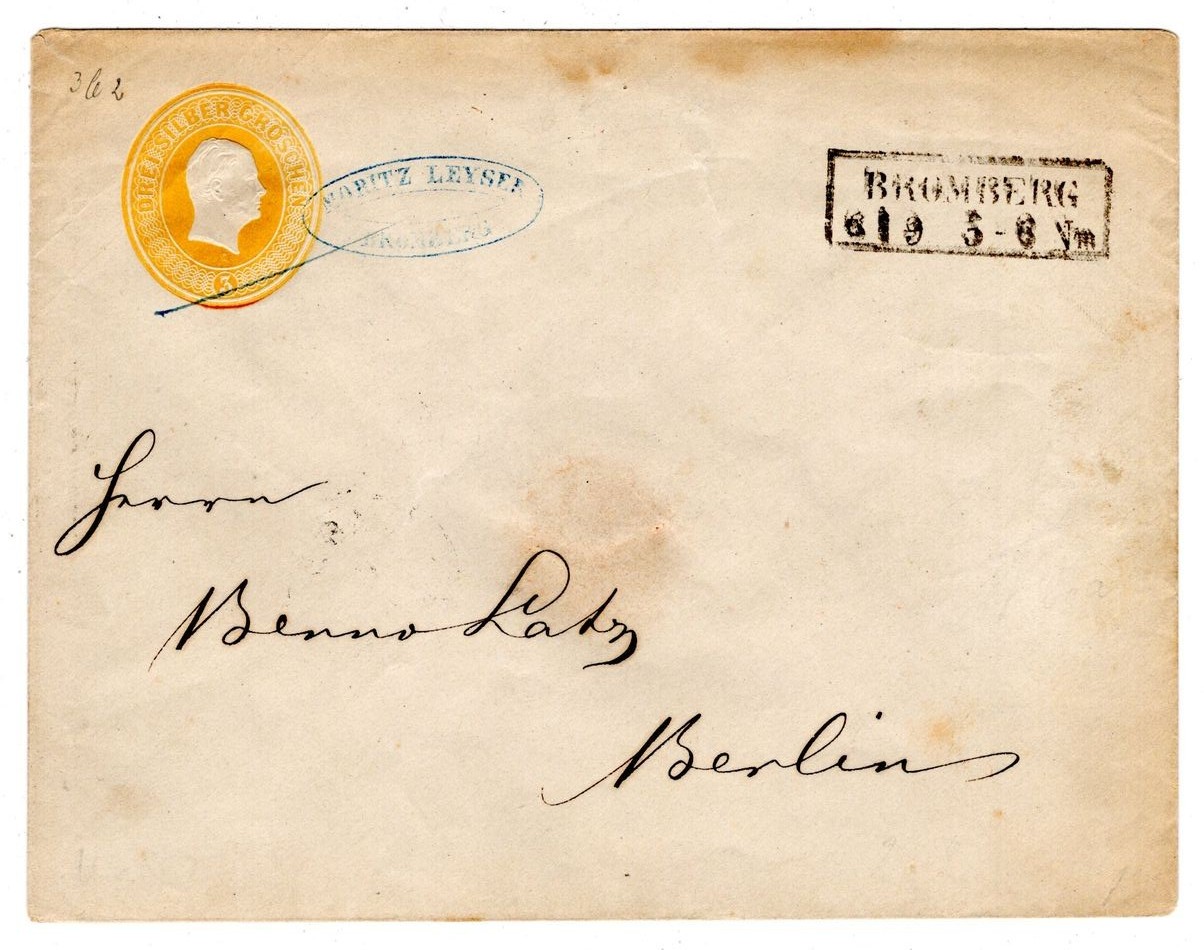 3 6 2
DREI·SILBER·GROSCHEN
3
MORITZ LEYSER
BROMBERG
BROMBERG
6 | 9 5-6 Nm
Herrn
Benno Latz
Berlin